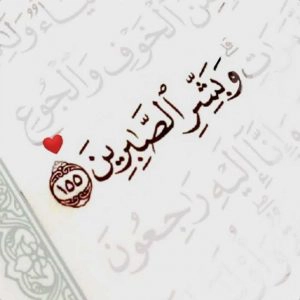 مِّنَ ٱلْخَوْفِ وَٱلْجُوعِ
وَبَشِّرِ ٱلصَّٰبِرِينَ ١٥٥
وَإِنَّآ إِلَيْهِ رَٰجِعُونَ